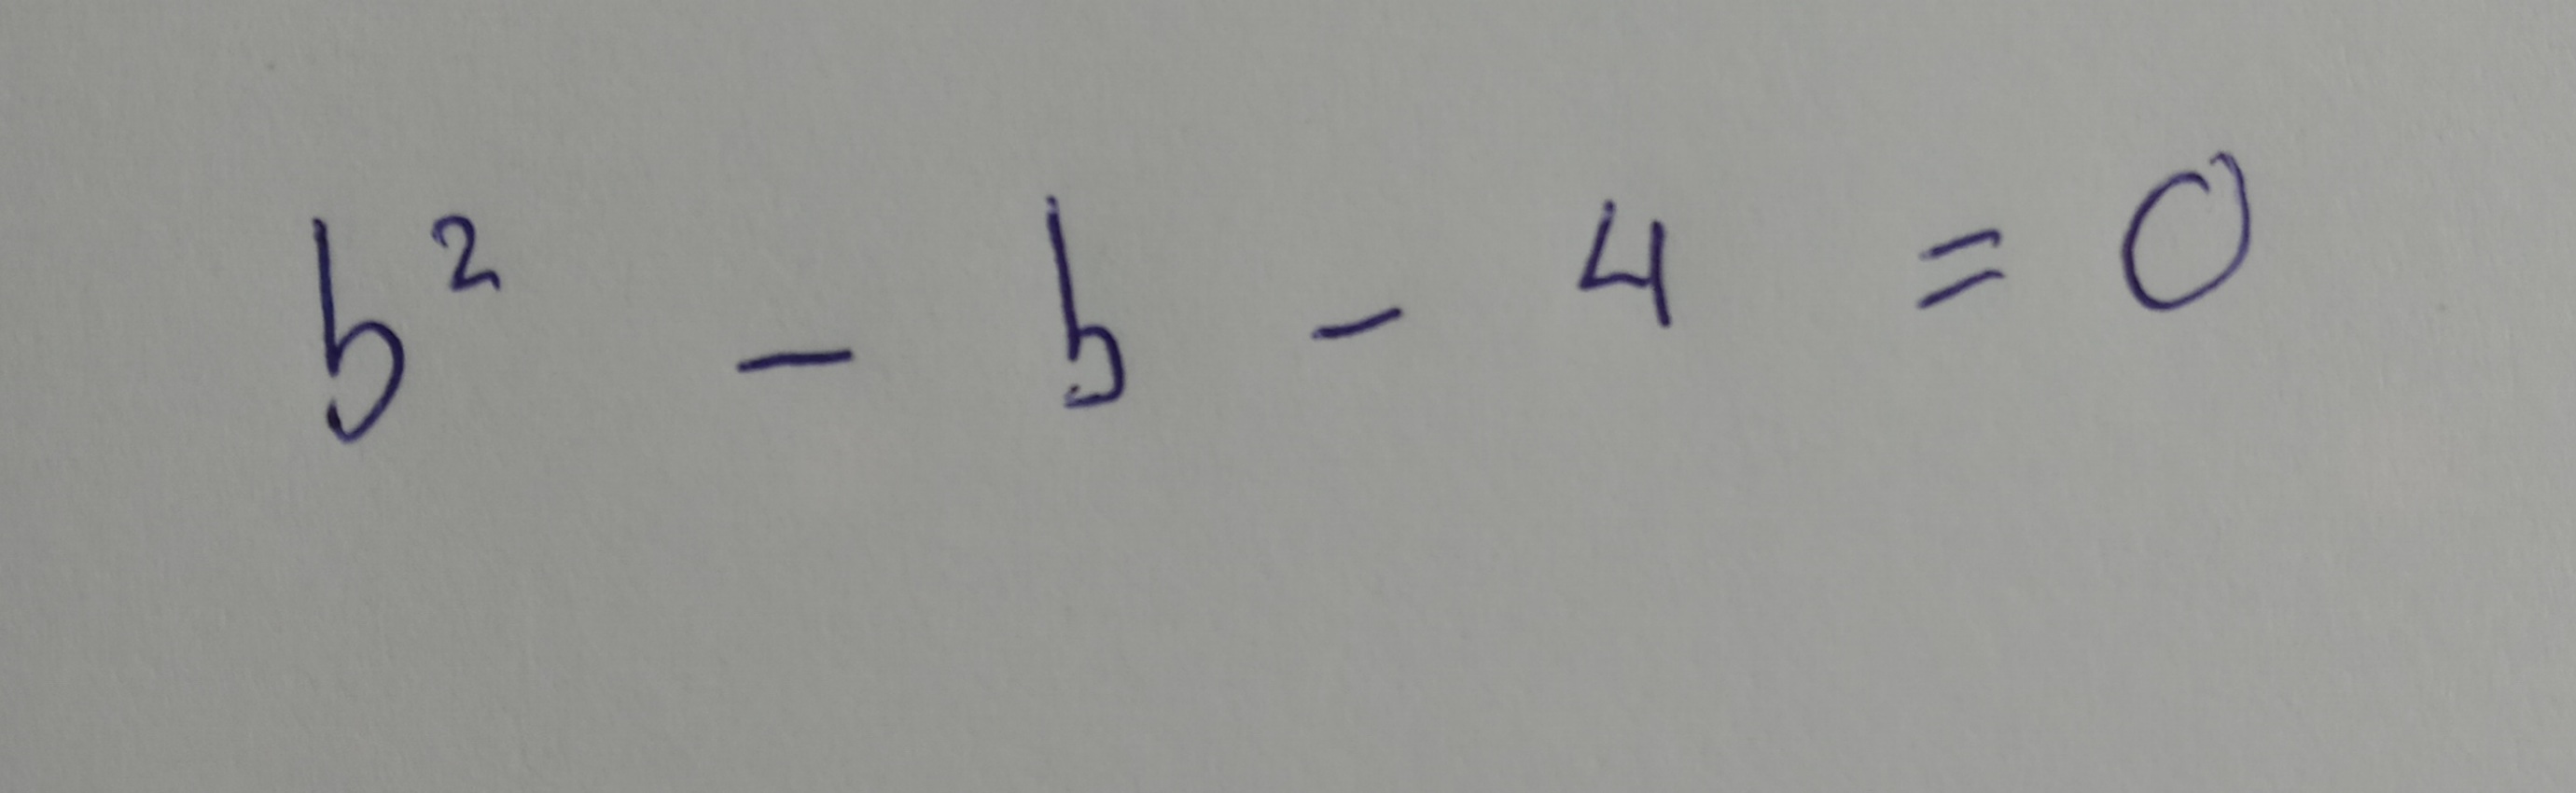 b² - b - 4 = 0